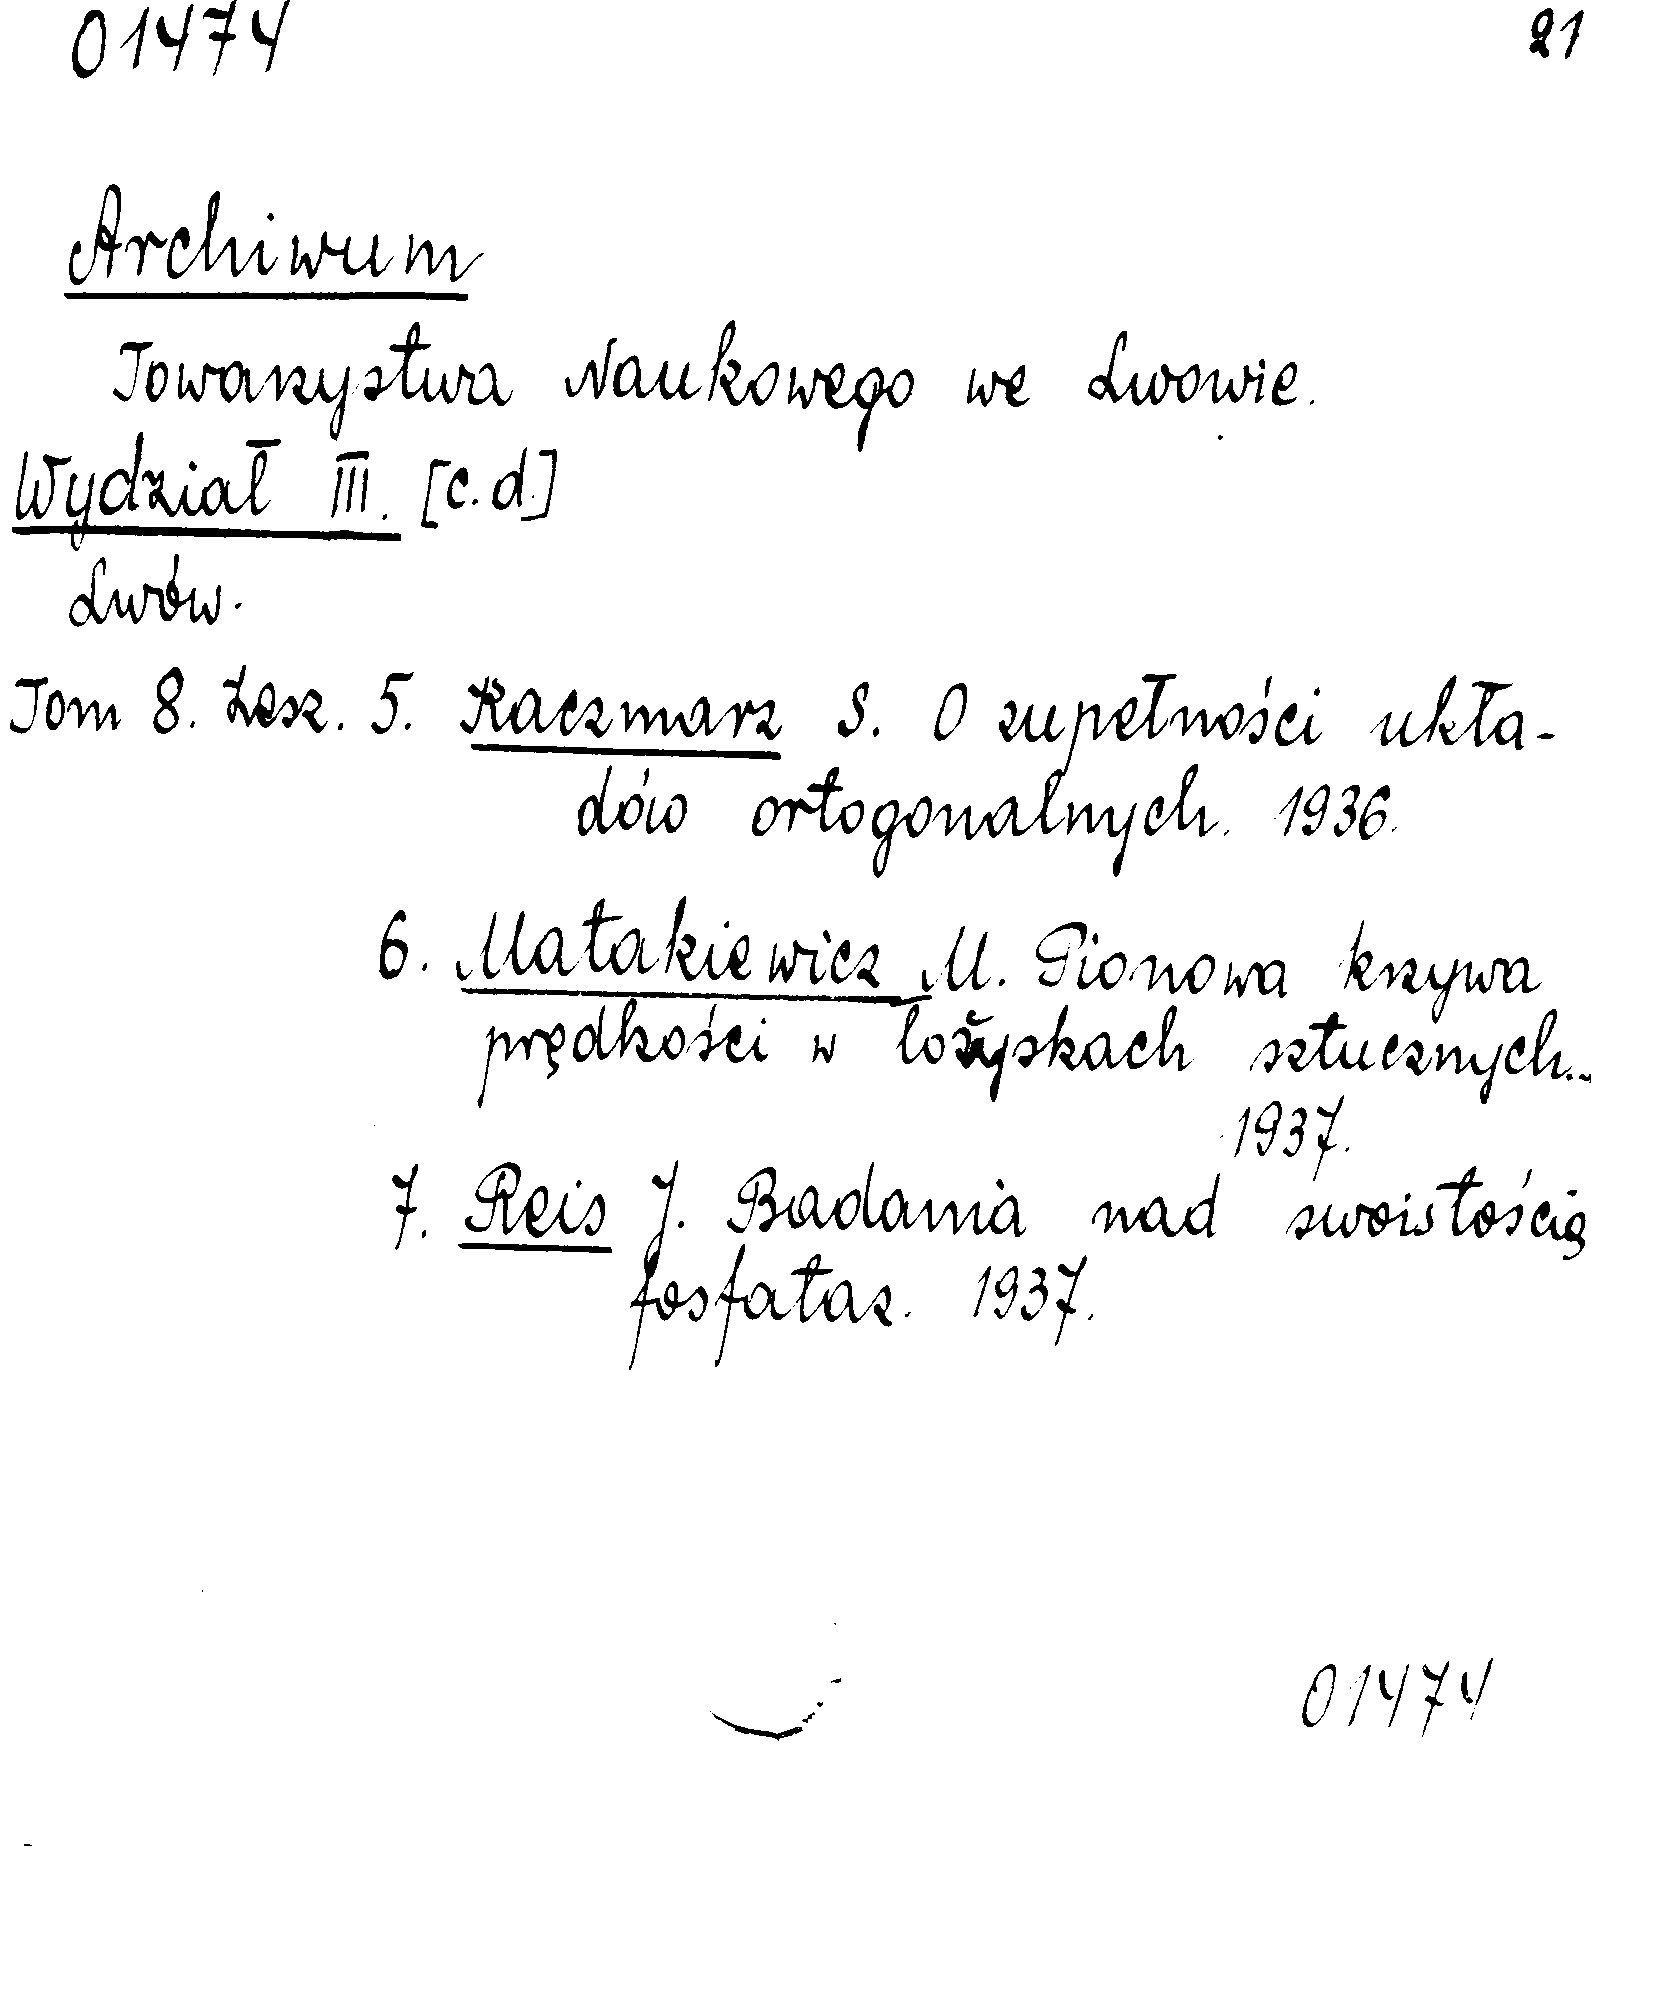 01474 21
Archiwum
Towarzystwa Naukowego we Lwowie.
Wydział III. [c.d.]
Lwów.
Tom 8. Zesz. 5. Kaczmarz S. O zupełności ukła-
dów ortogonalnych. 1936.
6. Matakiewicz M. Pionowa krzywa
prędkości w łożyskach sztucznych...
1937.
7. Reis J. Badania nad swoistością
fosfataz. 1937.
01474